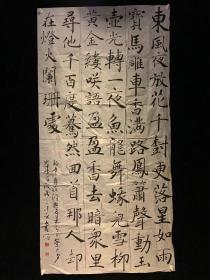 東風夜放花千樹更落星如雨
寶馬雕車香滿路鳳簫聲動玉
壺光轉一夜魚龍舞蛾兒雪柳
黃金縷咲語盈盈香去暗衆里
尋他千百度驀然回首那人却
在燈火闌珊處